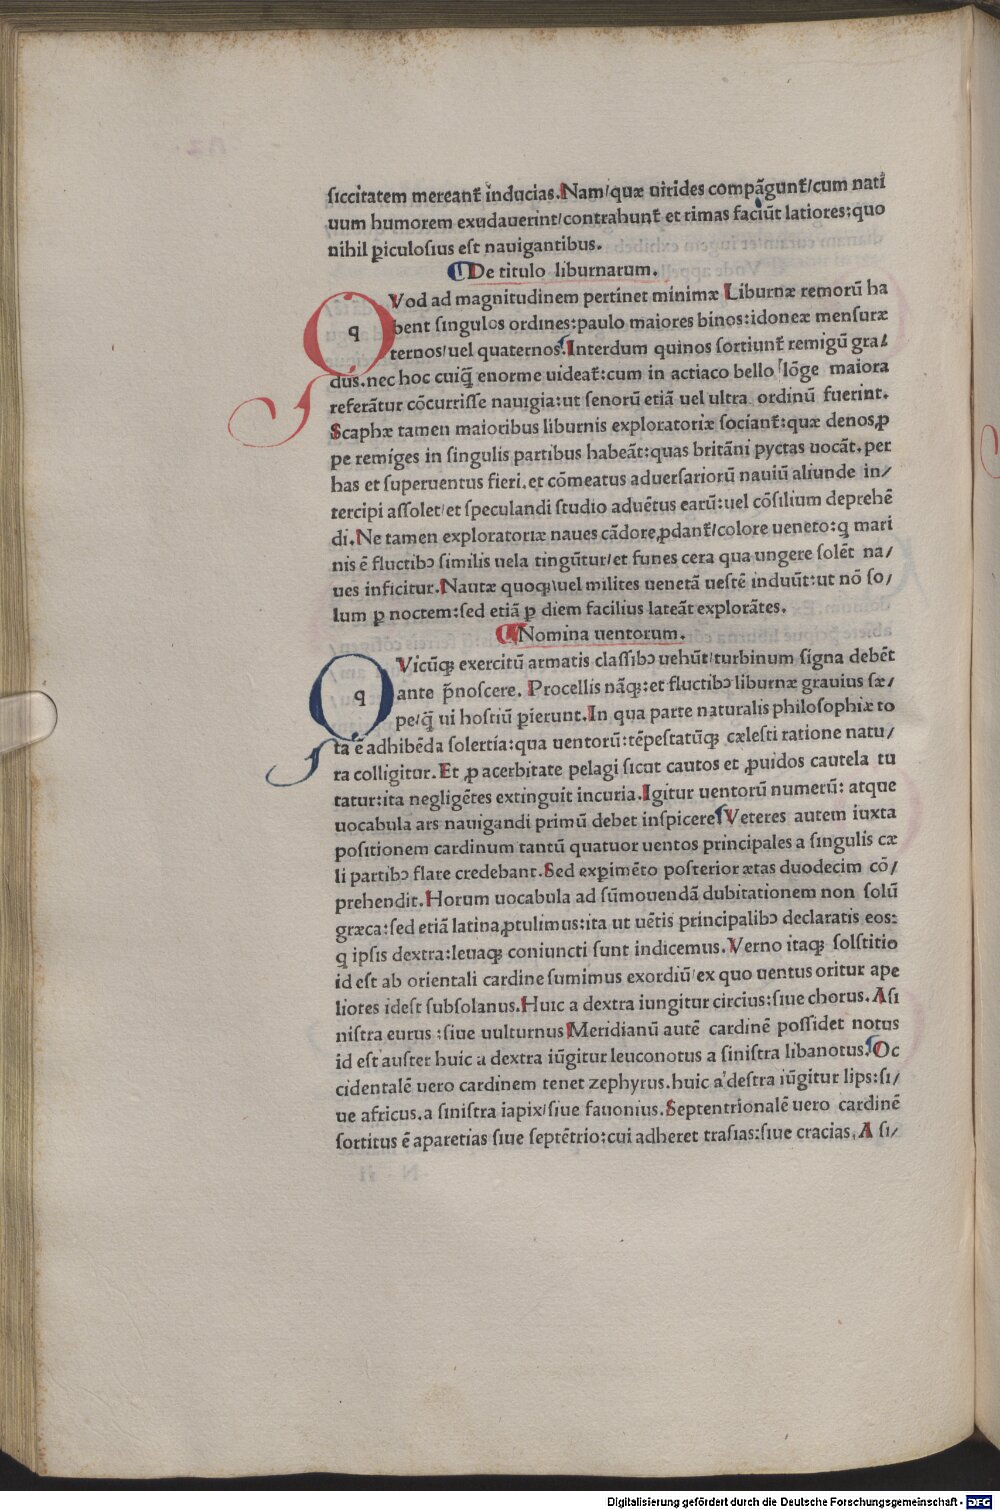 siccitatem mereant᷑ inducias. Nam/quæ uirides compāgunt᷑/cum nati
uum humorem exudauerint/contrahunt᷑ et rimas faciūt latiores:quo
nihil ꝑiculosius est nauigantibus.
De titulo liburnarum.
QVod ad magnitudinem pertinet minimæ Liburnæ remorū ha
q bent singulos ordines:paulo maiores binos:idoneæ mensuræ
ternos/uel quaternos. Interdum quinos sortiunt᷑ remigū gra/
dus.nec hoc cuiq̄ enorme uideat᷑:cum in actiaco bello lōge maiora
referāt᷑ur cōcurrisse nauigia:ut senorū etiā uel ultra ordinū fuerint.
Scaphæ tamen maioribus liburnis exploratoriæ sociant᷑:quæ denos,ꝓ
pe remiges in singulis partibus habeāt:quas britāni pyctas uocāt.per
has et superuentus fieri.et cōmeatus aduersariorū nauiū aliunde in/
tercipi assolet/et speculandi studio aduētus earū:uel cōsilium deprehē
di.Ne tamen exploratoriæ naues cādore,ꝓdant᷑/colore ueneto:q̄ mari
nis ē fluctibꝰ similis uela tingūtur/et funes cera qua ungere solēt na/
ues inficitur.Nautæ quoqꝫ uel milites uenetā uestē induūt:ut nō so/
lum ꝑ noctem:sed etiā ꝑ diem facilius lateāt explorātes.
Nomina uentorum.
QVicūqꝫ exercitū armatis classibꝰ uehūt/turbinum signa debēt
q ante p̄noscere. Procellis nāqꝫ:et fluctibꝰ liburnæ grauius sæ/
pe/q̄ ui hostiū ꝑierunt.In qua parte naturalis philosophiæ to
ta ē adhibēda solertía:qua uentorū:tēpestatūqꝫ cælesti ratione natu/
ra colligitur. Et ,ꝓ acerbitate pelagi sicut cautos et ,ꝓuidos cautela tu
tatur:ita negligētes extinguit incuria.Igitur uentorū numerū: atque
uocabula ars nauigandi primū debet inspicere Veteres autem iuxta
positionem cardinum tantū quatuor uentos principales a singulis cæ
li partibꝰ flare credebant.Sed exꝑimēto posterior ætas duodecim cō/
prehendit.Horum uocabula ad sūmouendā dubitationem non solū
græca:sed etiā latina,ꝓtulimus:ita ut uētis principalibꝰ declaratis eos:
q̄ ipsis dextra:leuaqꝫ coniuncti sunt indicemus.Verno itaqꝫ solstitio
id est ab orientali cardine sumimus exordiū/ex quo uentus oritur ape
liotes idest subsolanus.Huic a dextra iungitur circius:siue chorus. A si
nistra eurus :siue uulturnus Meridianū autē cardinē possidet notus
id est auster huic a dextra iūgitur leuconotus a sinistra libanotus. Oc
cidentalē uero cardinem tenet zephyrus.huic a destra iūgitur lips:si/
ue africus.a sinistra iapix/siue fauonius.Septentrionalē uero cardinē
sortitus ē aparctias siue septētrio:cui adheret trasias:siue cracias. A si/
Digitalisierung gefördert durch die Deutsche Forschungsgemeinschaft - DFG